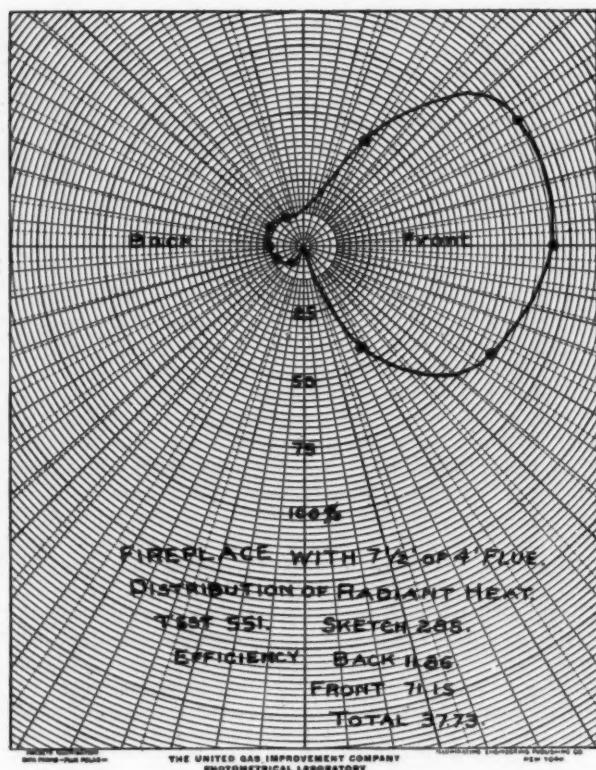 Back Front
25
50
75
100%
FIREPLACE WITH 7½' OF 4" FLUE.
DISTRIBUTION OF RADIANT HEAT.
TEST 551. SKETCH 288.
EFFICIENCY BACK 11.86
FRONT 71.15
TOTAL 37.73.
THE UNITED GAS IMPROVEMENT COMPANY
PHOTOMETRICAL LABORATORY
ILLUMINATING ENGINEERING PUBLISHING CO.
NEW YORK